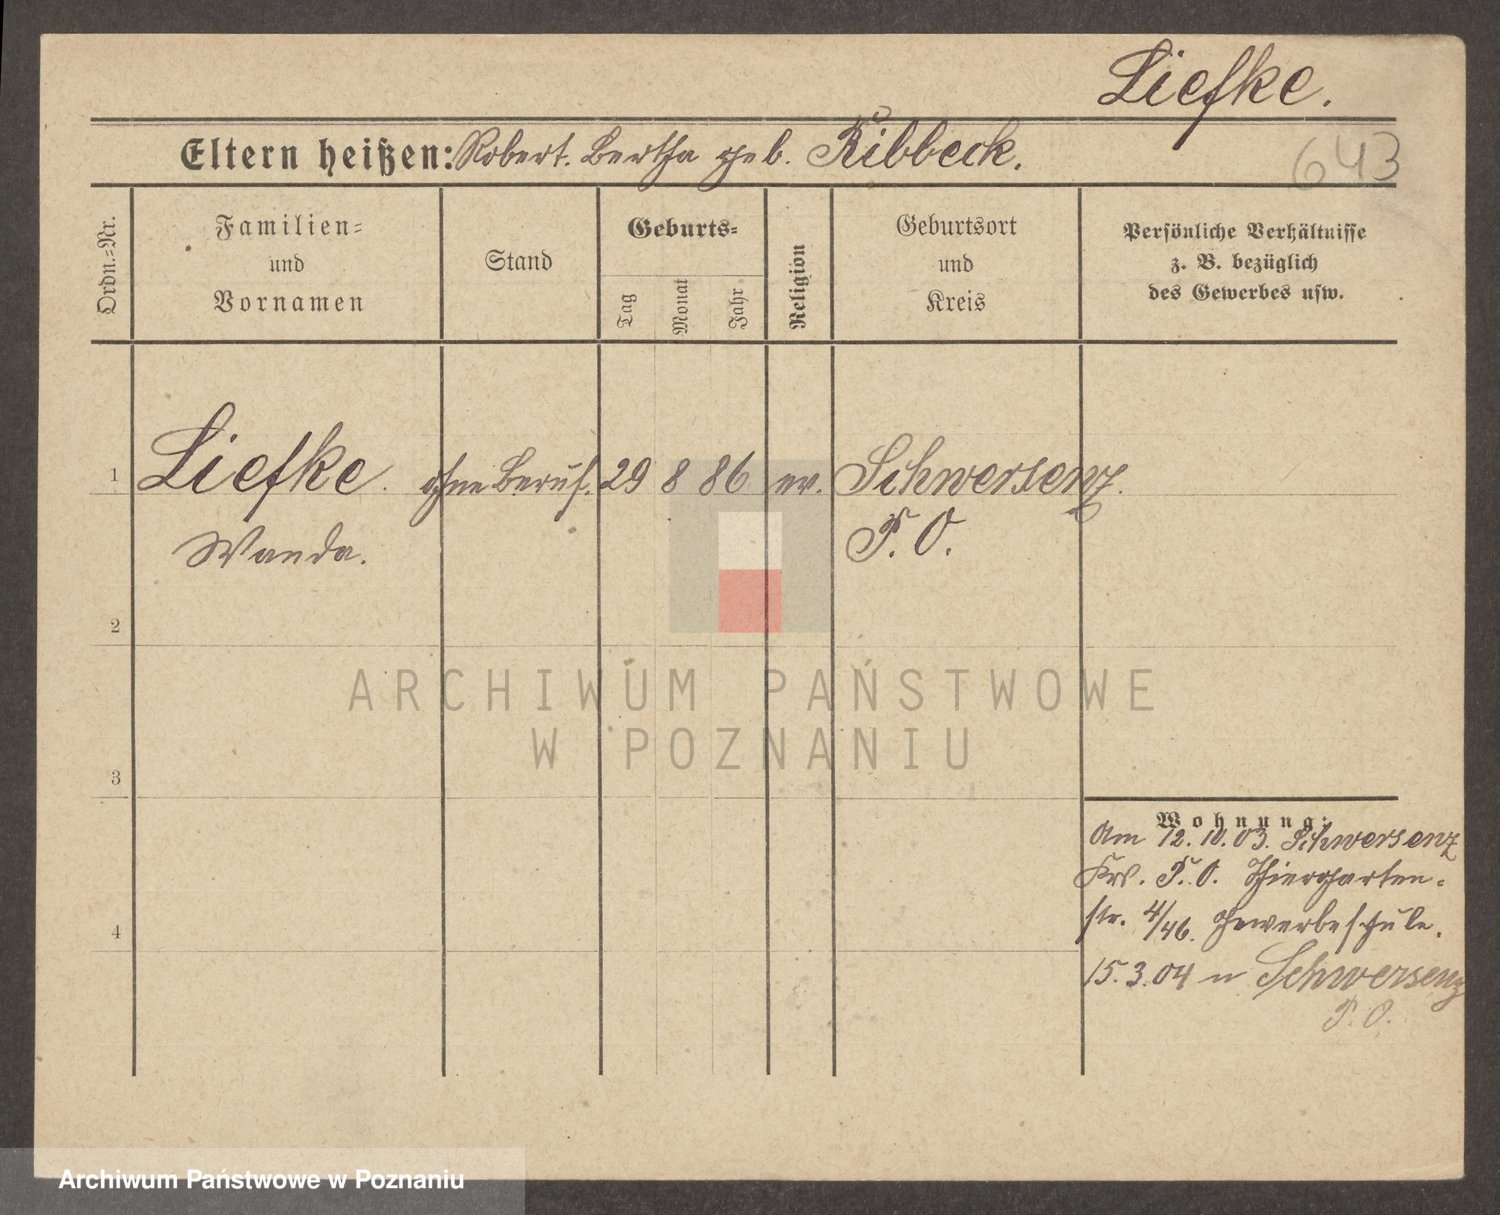 Liefke.
Eltern heißen: Robert. Bertha geb. Ribbeck.
643
Ordn.-Nr.
Familien-
und
Vornamen
Stand
Geburts-
Tag
Monat
Jahr
Religion
Geburtsort
und
Kreis
Persönliche Verhältnisse
z. B. bezüglich
des Gewerbes usw.
1 Liefke. ohne Beruf. 29 8 86 ev. Schwersenz.
Wanda. P. O.
2
3
4
Wohnung:
Am 12. 10. 03. Schwersenz
Krs. P. O. Thiergarten-
str. 4/46. Gewerbeschule.
15. 3. 04 n Schwersenz
P. O.
ARCHIWUM PAŃSTWOWE
W POZNANIU
Archiwum Państwowe w Poznaniu